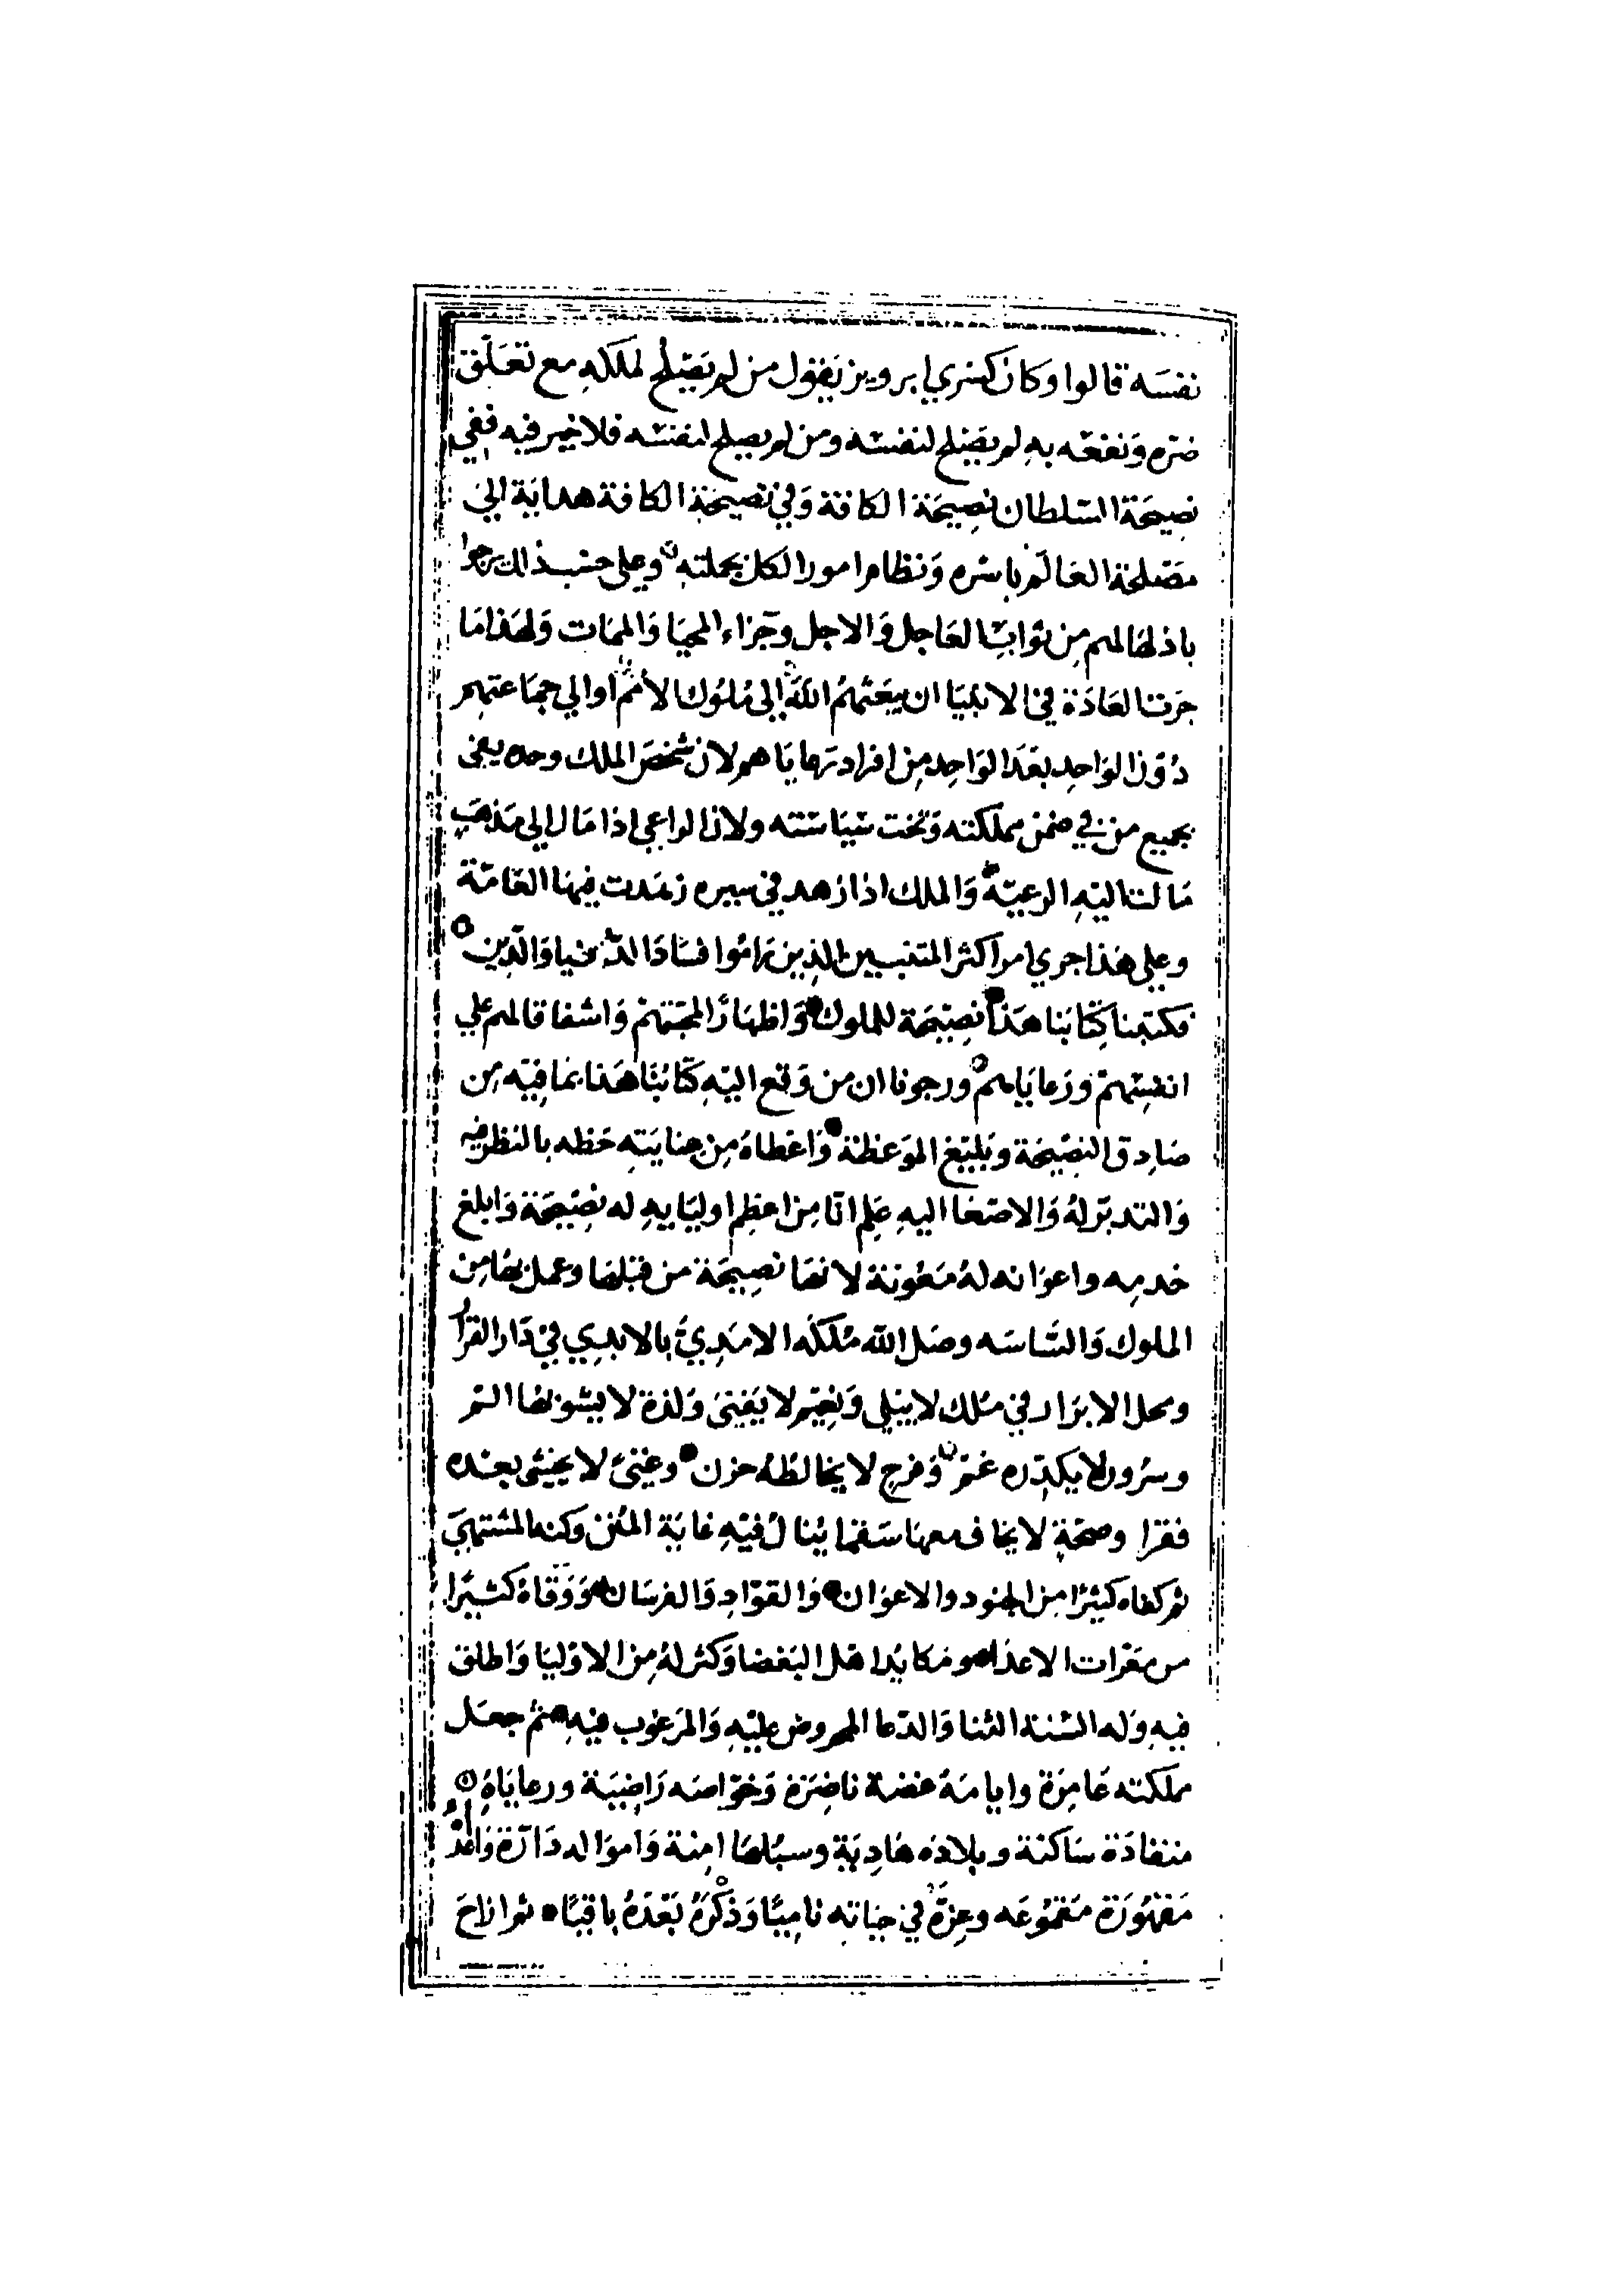 نفسَه قالوا وكان كسري ابرويز يَقول من لم يَصْلح لملكهِ مع تعَلّق
ضرّه وَنفعَه بهِ لم يَصْلح لنفسه ومن لم يصلح لنفسه فلا خير فيه ففي
نصيحَة السّلطان نصِيحَة الكافة وَفي نصيحَة الكافة هدايَة الي
مصَلحَة العَالَم باسْره وَنظام امور الكل بجملتهِ وعلى حسْب ذالك يرجوا
باذلهَا لهم مِن ثوابِ العَاجل وَالاجل وجَزاء المحيَا وَالممَات وَلهَذا مَا
جرَت العَادَة في الانبيَا ان يبعَثهمُ اللهُ إلى مُلوُك الأممُ اوالي جمَاعتهم
دُوْن الوَاحِد بعَدَ الوَاحِد مِن افراد رَعايَا هم لان شخصَ الملك وحده يفى
بجميع من في ضمن مملكته وَتحت سيَاسَته ولان الراعي اذا مَال الى مَذهَبٍ
مَالت اليْهِ الرعيّة وَالملك اذا زهد في سيره زهَدت فيهَا العَامّة
وعلى هَذا جري امر اكثر المتنبيين الذِين رَامُوا فسَادَ الدّنيا وَالدِّين
فكتبنا كِتابَنا هَذا نصِيْحَة للملوك وَاظهارًا لمحبّتهمْ وَاشفاقا لهم علي
انفسِهمْ ورَعايَاهم ورجونا ان من وَقع اليْهِ كتابُنَا هَذا بمَا فيْهِ مِن
صَادِق النصِيْحَة وَبليْغ الموَعظة وَاعَطاهُ مِن عنايَتهِ حَظه بالنظر فيه
وَالتدبّر لهُ وَالاصغَا اليهِ عَلِم انّا مِن اعظِم اوليَايهِ له نصِيْحَة وَابلغ
خدمِه واعوَانه لهُ مَعُونة لانهَا نصِيحَة من قبْلهَا وعمل بهَا مِن
الملوك وَالسَّاسَه وصَل الله مُلكَه الامَدِيَّ بالابدي فيْ دَار القرَارُ
ومحل الابرَار في مُلك لا يبْلي وَنعِيْم لا يَفْنىَ وَلذة لا يشوبهَا الم
وسرُور لا يكدِّره غم وَفرحٍ لا يخالطهُ حزن وغِنىً لا يخشى بعدْه
فقرا وصحّةٍ لا يخاف معهَا سَقما يُنال فيْهِ غايَة المُنىَ وكنه المشتهيَ
ثم كفاه كثيرًا مِن الجنود والاعوَان وَالقوّادِ وَالفرسَان وَوَقاهُ كثيْرًا
من معَرّات الاعدَاء ومَكايُد اهْل البَغضا وَكثر لهُ مِن الاوْليَا وَاطلق
فيهِ وَله السْنة الثنا وَالدّعا المحروص عليْهِ وَالمرَغوب فيهِ ثم جعَل
مملكته عَامِرَة وايامَهُ غضة ناضِرَة وَخوّاصه رَاضِيَة ورعايَاهِ
منقادَة سَاكنة وبلادَه هَادِيَة وسبُلهَا امِنة وَاموَاله دَارّة وَاعداءُ
مَقهُوَرَة مَقموُعَه وعِزّهُ في حيَاتهِ نامِيًا وَذِكْرَهُ بَعْدَهُ باقيًا ثم انراحَ